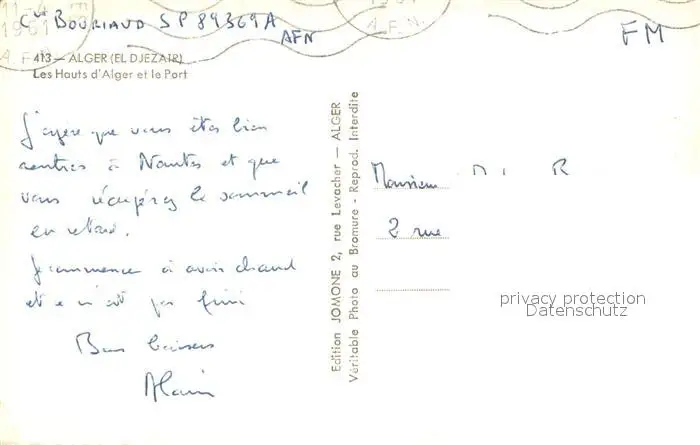 Cne BOURIAUD SP 89369A
AFN
FM
1961
A.F.N
A.F.N
413 — ALGER (EL DJEZAIR)
Les Hauts d'Alger et le Port
J'espère que vous êtes bien
rentrés à Nantes et que
vous récupérez le sommeil
en retard.
Je commence à avoir chaud
et ce n'est pas fini
Bons baisers
Alain
Edition JOMONE 2, rue Levacher — ALGER
Véritable Photo au Bromure - Reprod. Interdite
Monsieur
2 rue
privacy protection
Datenschutz